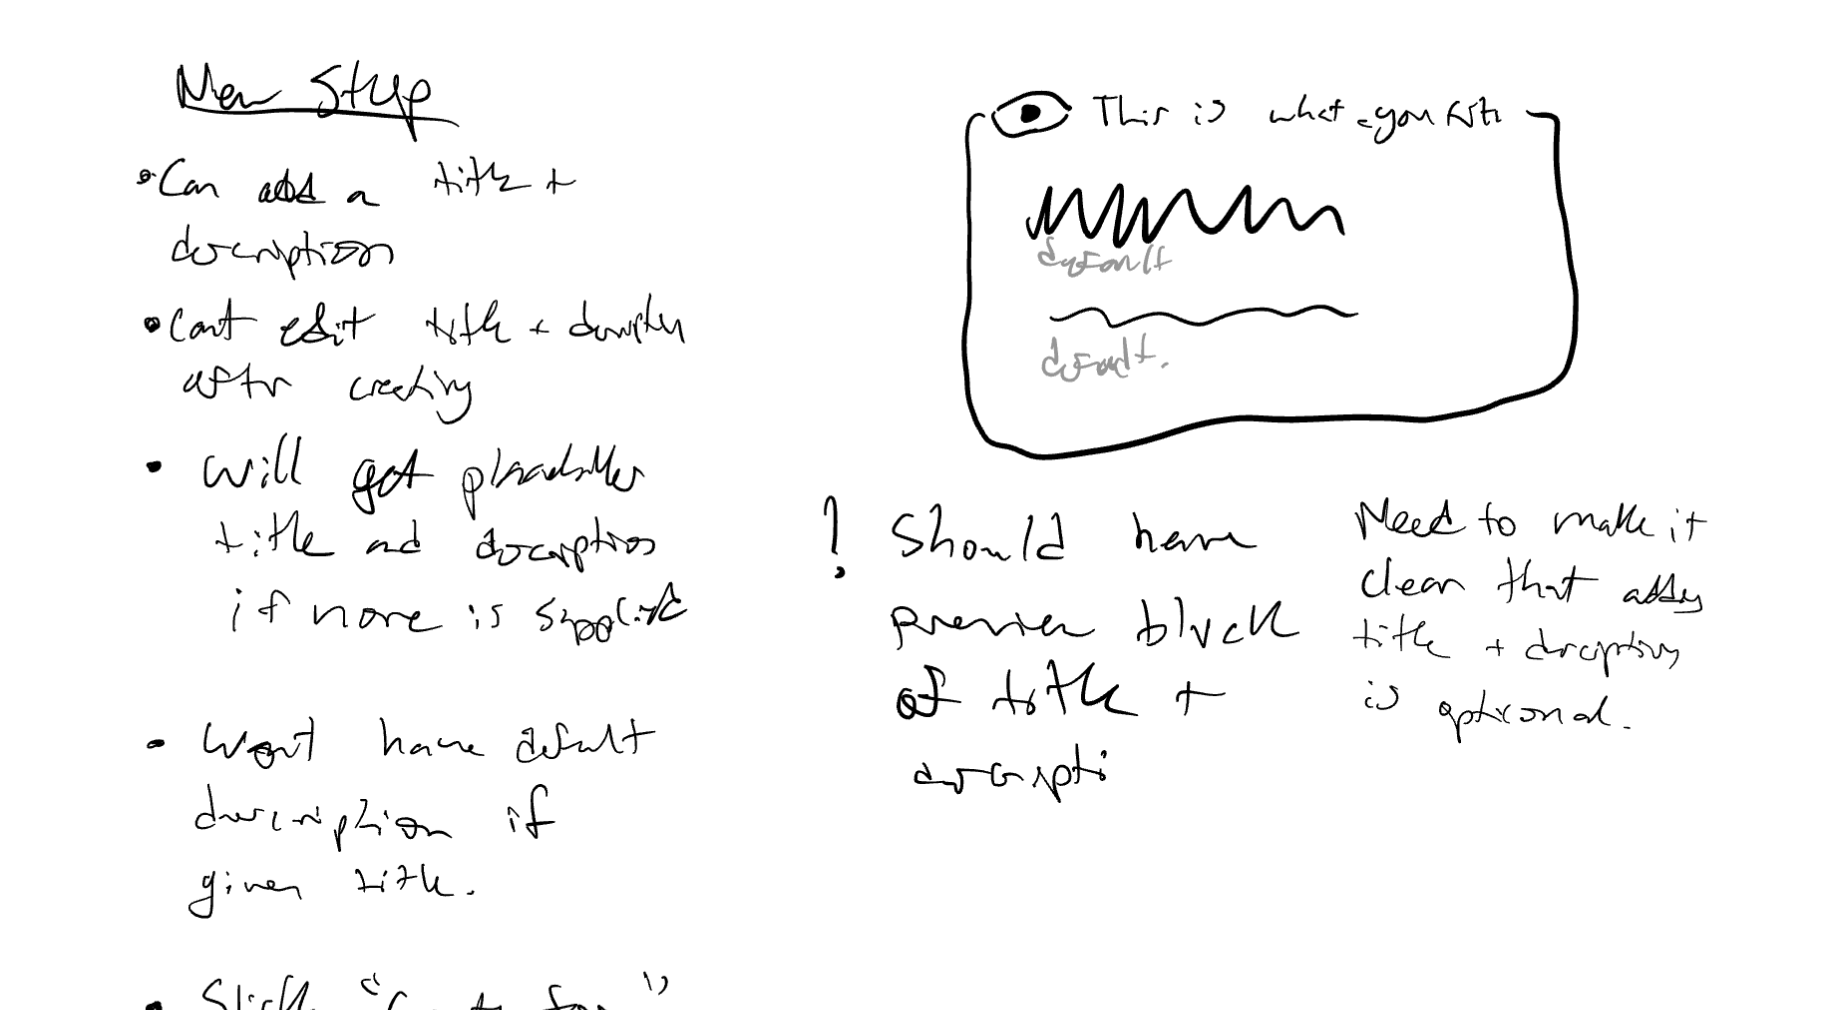 New Step
• Can add a title +
description
• Cant edit title +
after creating
• Will get placeholder
title and description
if none is supplied
• Wont have default
description if
given title.
This is what you
default
default.
! Should have
preview block
of title +
descripti
Need to make it
clear that adding
title + description
is optional.